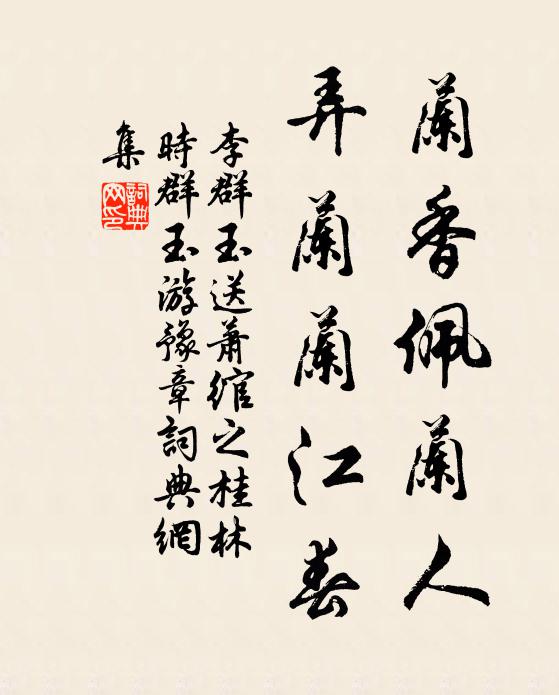 蘭香佩蘭人
弄蘭蘭江春
李群玉送蕭綰之桂林
時群玉游豫章詞典網
集
詞典網印